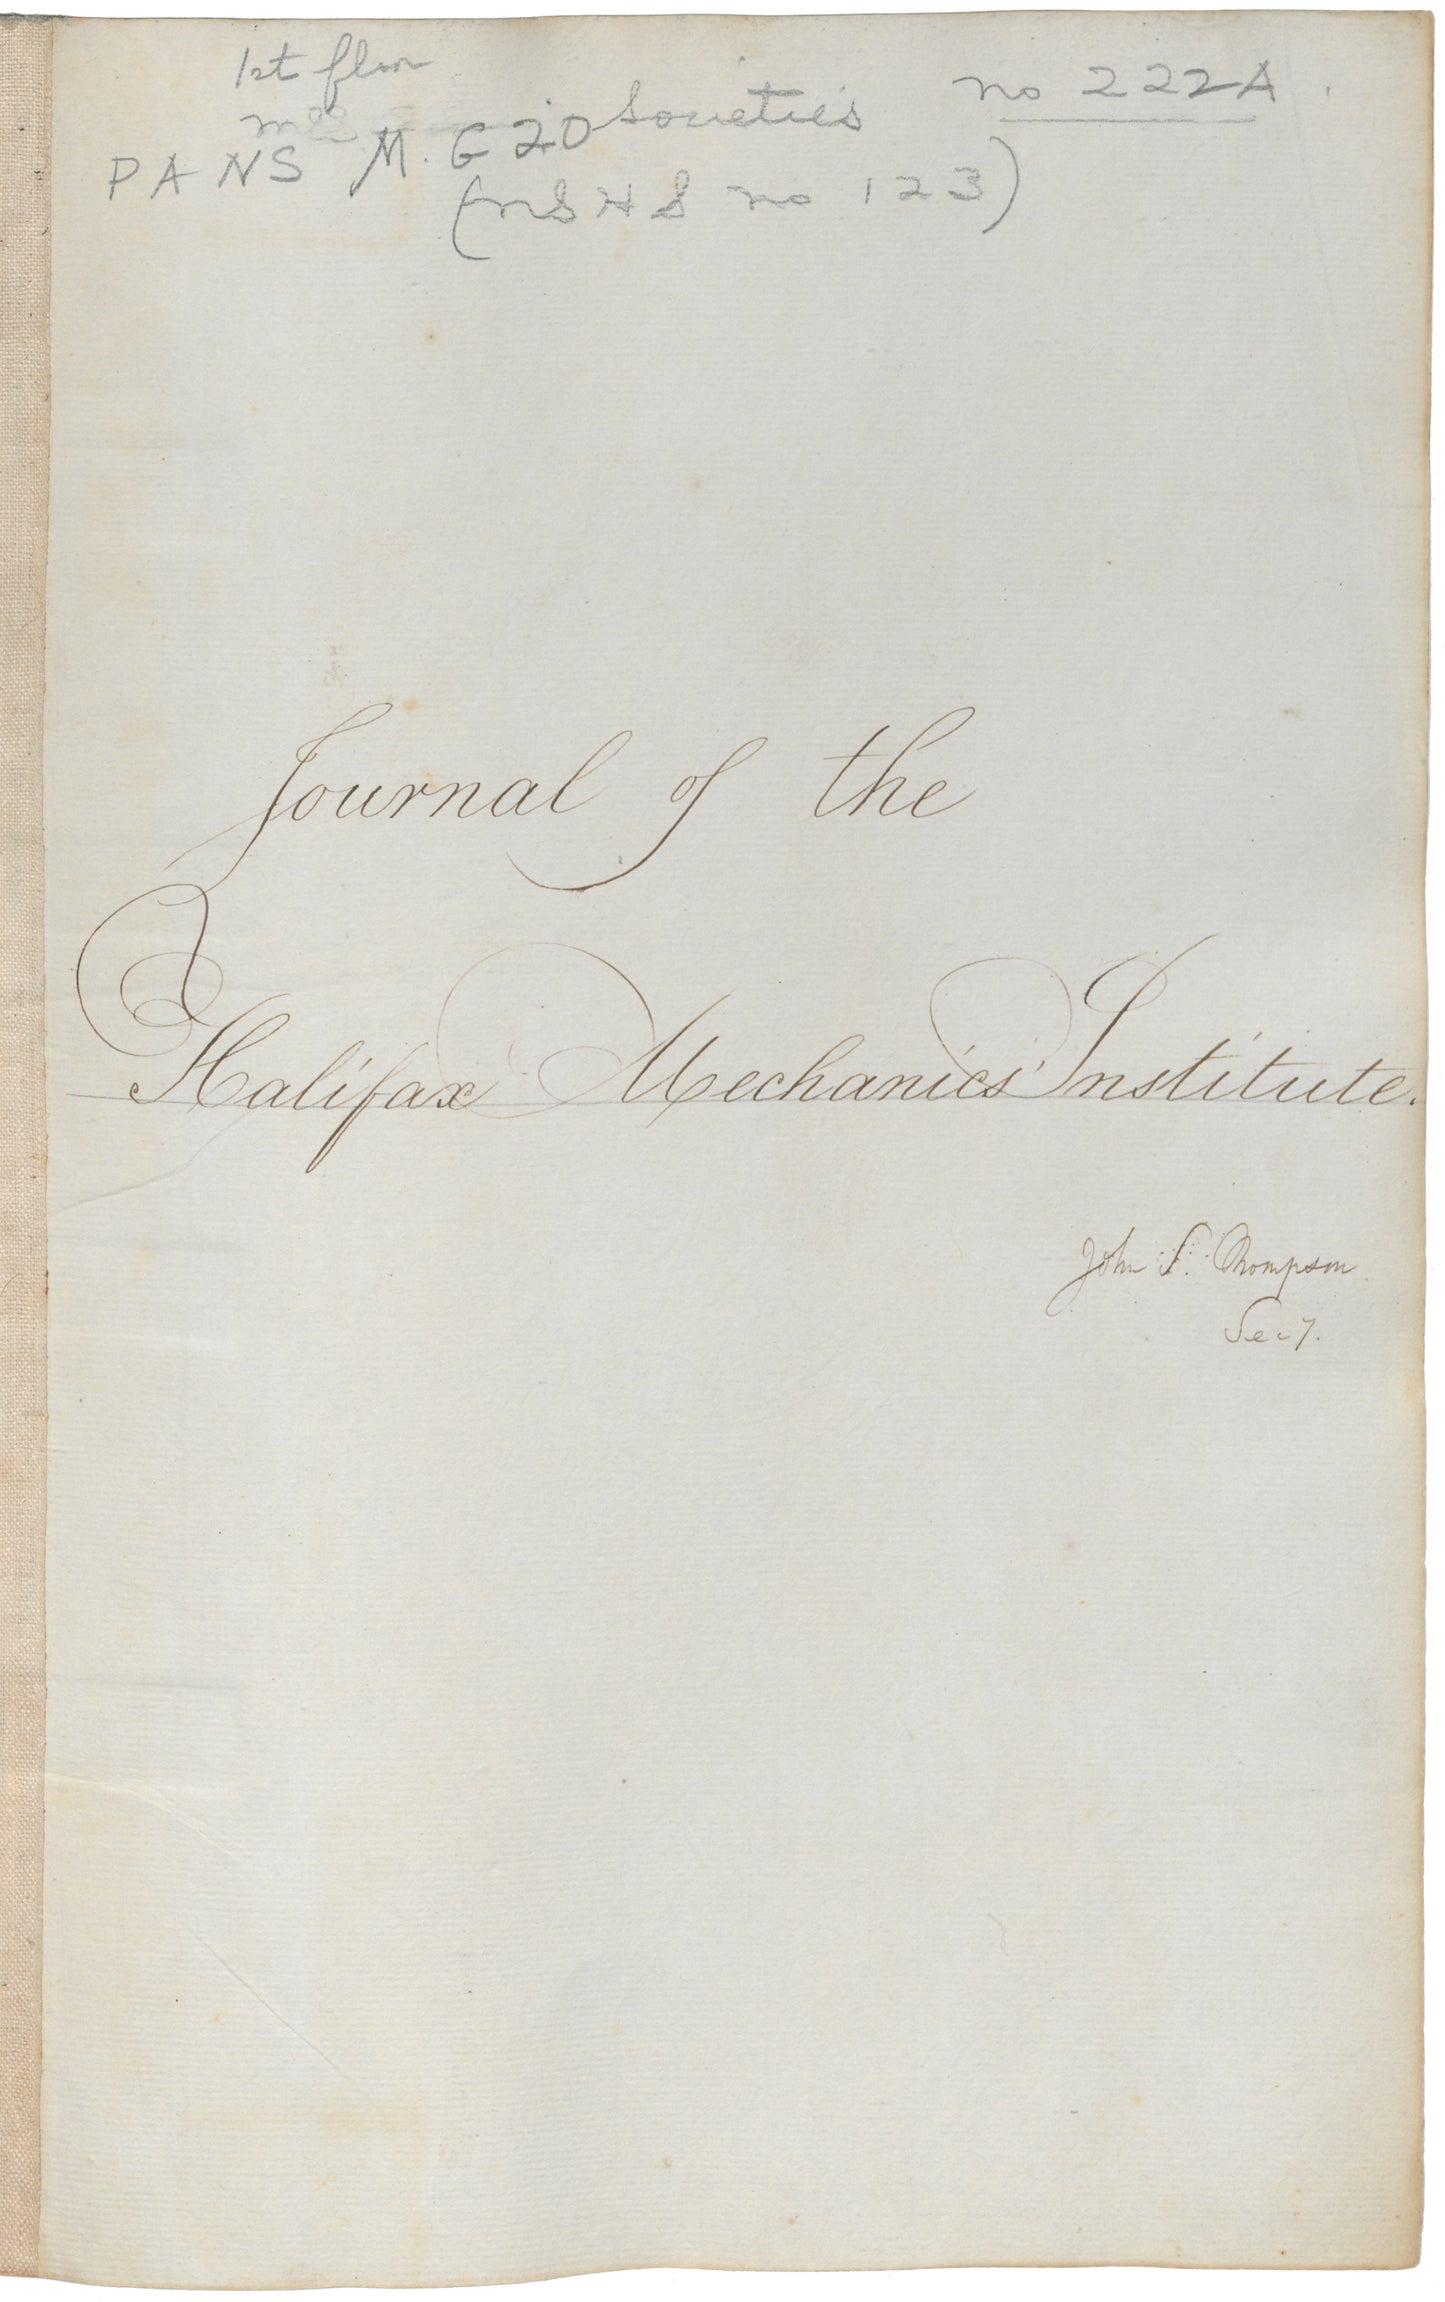 1st floor
PANS M.G 20 Societies no 222A.
(NSHS no 123)
Journal of the
Halifax Mechanics' Institute.
John S. Thompson
Secy.